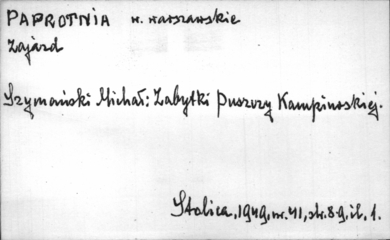 PAPROTNIA w. warszawskie
Zajazd
Szymański Michał: Zabytki Puszczy Kampinoskiej.
Stolica, 1949, nr. 41, str. 8-9, il. 1.